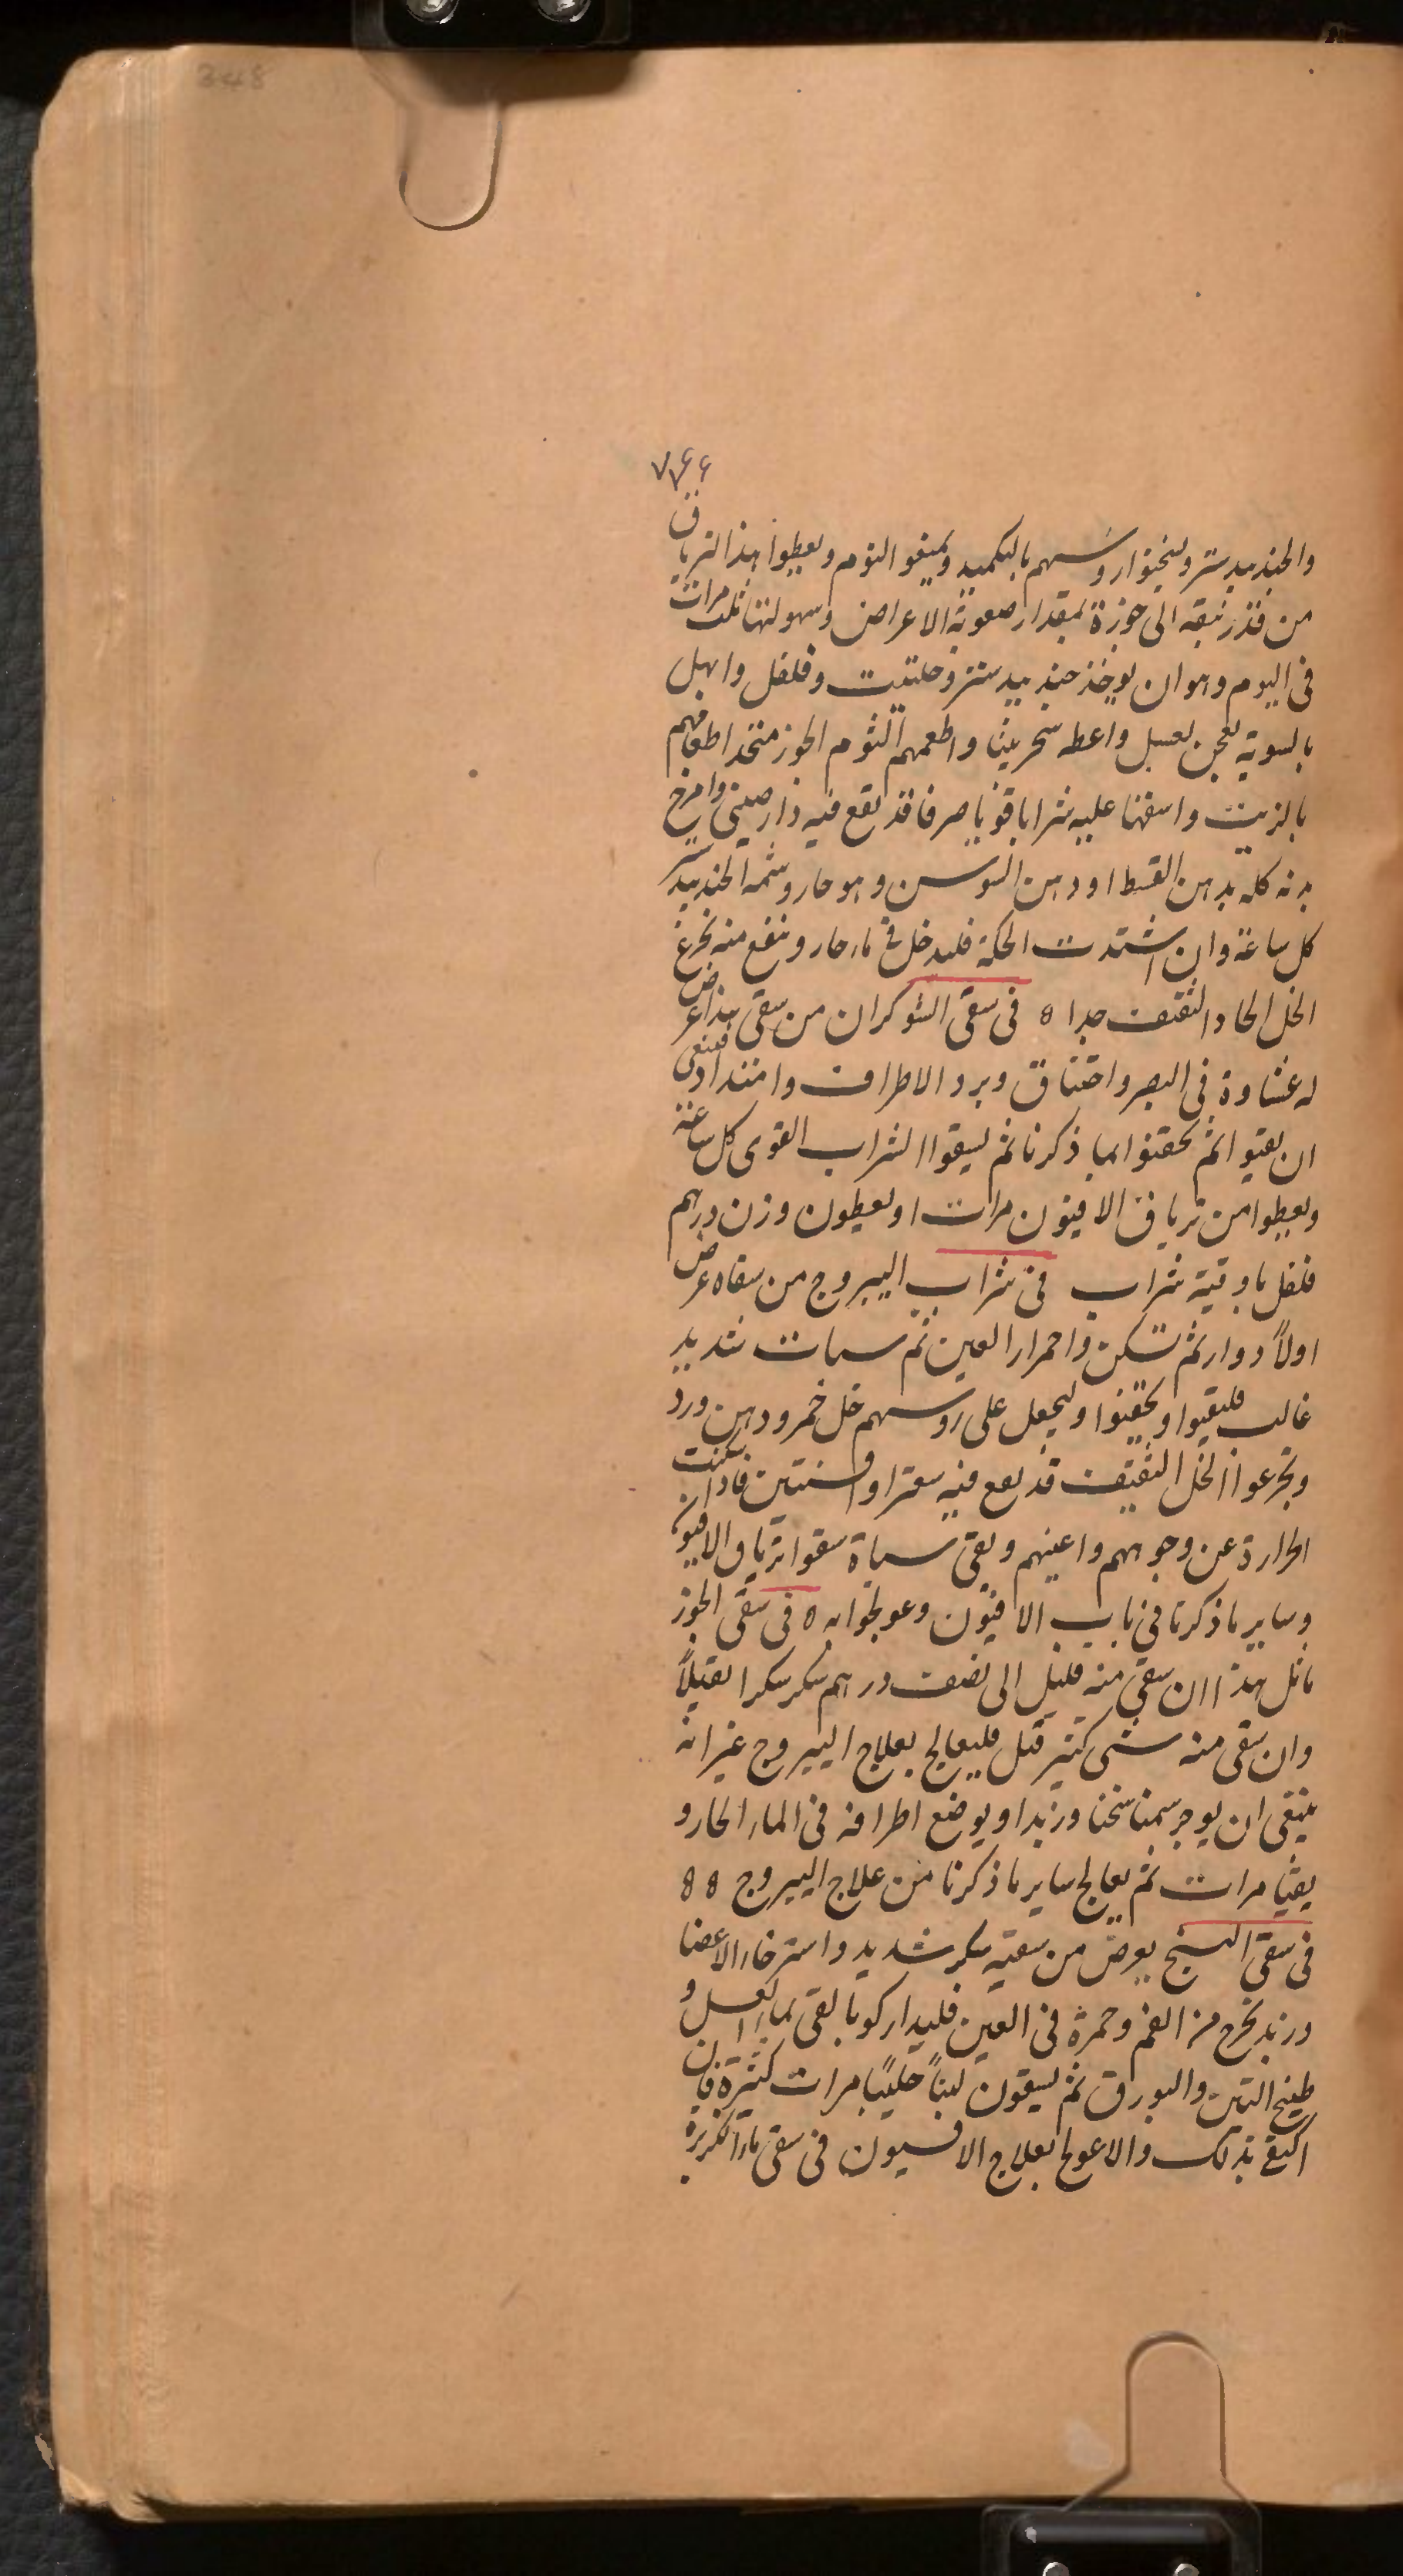 348
۷۶۶
والجندبيدستر وليسخنوا روسهم بالتكميد ويمنعوا النوم ويعطوا هذا الترياق
من قدر نبقه الى جوزة بمقدار صعوبة الاعراض وسهولتها ثلث مرات
فى اليوم وهو ان يوخذ جندبيدستر وحلتيت وفلفل وابهل
بالسوية يعجن بعسل واعطه سجرينا واطعمهم الثوم الجوز متخذا طعامهم
بالزيت واسقهنا عليه شرابا قويا صرفا قد نقع فيه دارصينى وامرخ
بدنه كله بدهن القسط او دهن السوسن وهو حار وشمه الجندبيدستر
كل ساعة وان اشتدت الحكة فليدخل فى ماء حار وينفع منه تجرع
الخل الحاد الثقيف جدا ه فى سقى الشوكران من سقى هذا عرض
له غشاوة فى البصر واختناق وبرد الاطراف وامتداد فينبغى
ان يقيوا ثم يحقنوا بما ذكرنا ثم ليسقوا الشراب القوى كل ساعة
ويعطوا من ترياق الافيون مرات او يعطون وزن درهم
فلفل باوقية شراب فى شراب اليبروح من سقاه عرض
اولاً دوار ثم تسكن واحمرار العين ثم سبات شديد
غالب فليقيوا ويحقنوا وليجعل على روسهم خل خمر ودهن ورد
وتجرعوا الخل الثقيف قد نقع فيه سعترا وافسنتين فاذا سكنت
الحرارة عن وجوههم واعينهم وبقى سباة سقوا ترياق الافيون
وساير ما ذكرنا فى باب الافيون وعولجوا به ه فى سقى الجوز
ماثل هذا ان سقى منه قليل الى نصف درهم سكر سكرا ثقيلاً
وان سقى منه شى كثير قتل فليعالج بعلاج اليبروح غير انه
ينبغى ان يوجر سمنا سخنا وزبدا ويوضع اطرافه فى الماء الحار و
يقيا مرات ثم يعالج ساير ما ذكرنا من علاج اليبروح ه ه
فى سقى البنج يعرض من سقيه سكر شديد واسترخاء الاعضا
وزبد يخرج من الفم وحمرة فى العين فليداركوا بالقى بماء العسل و
طبيخ التين والبورق ثم ليسقون لبناً حليباً مرات كثيرة فان
اكتفى بذلك والا عولج بعلاج الافسيون فى سقى ماء الكزبرة